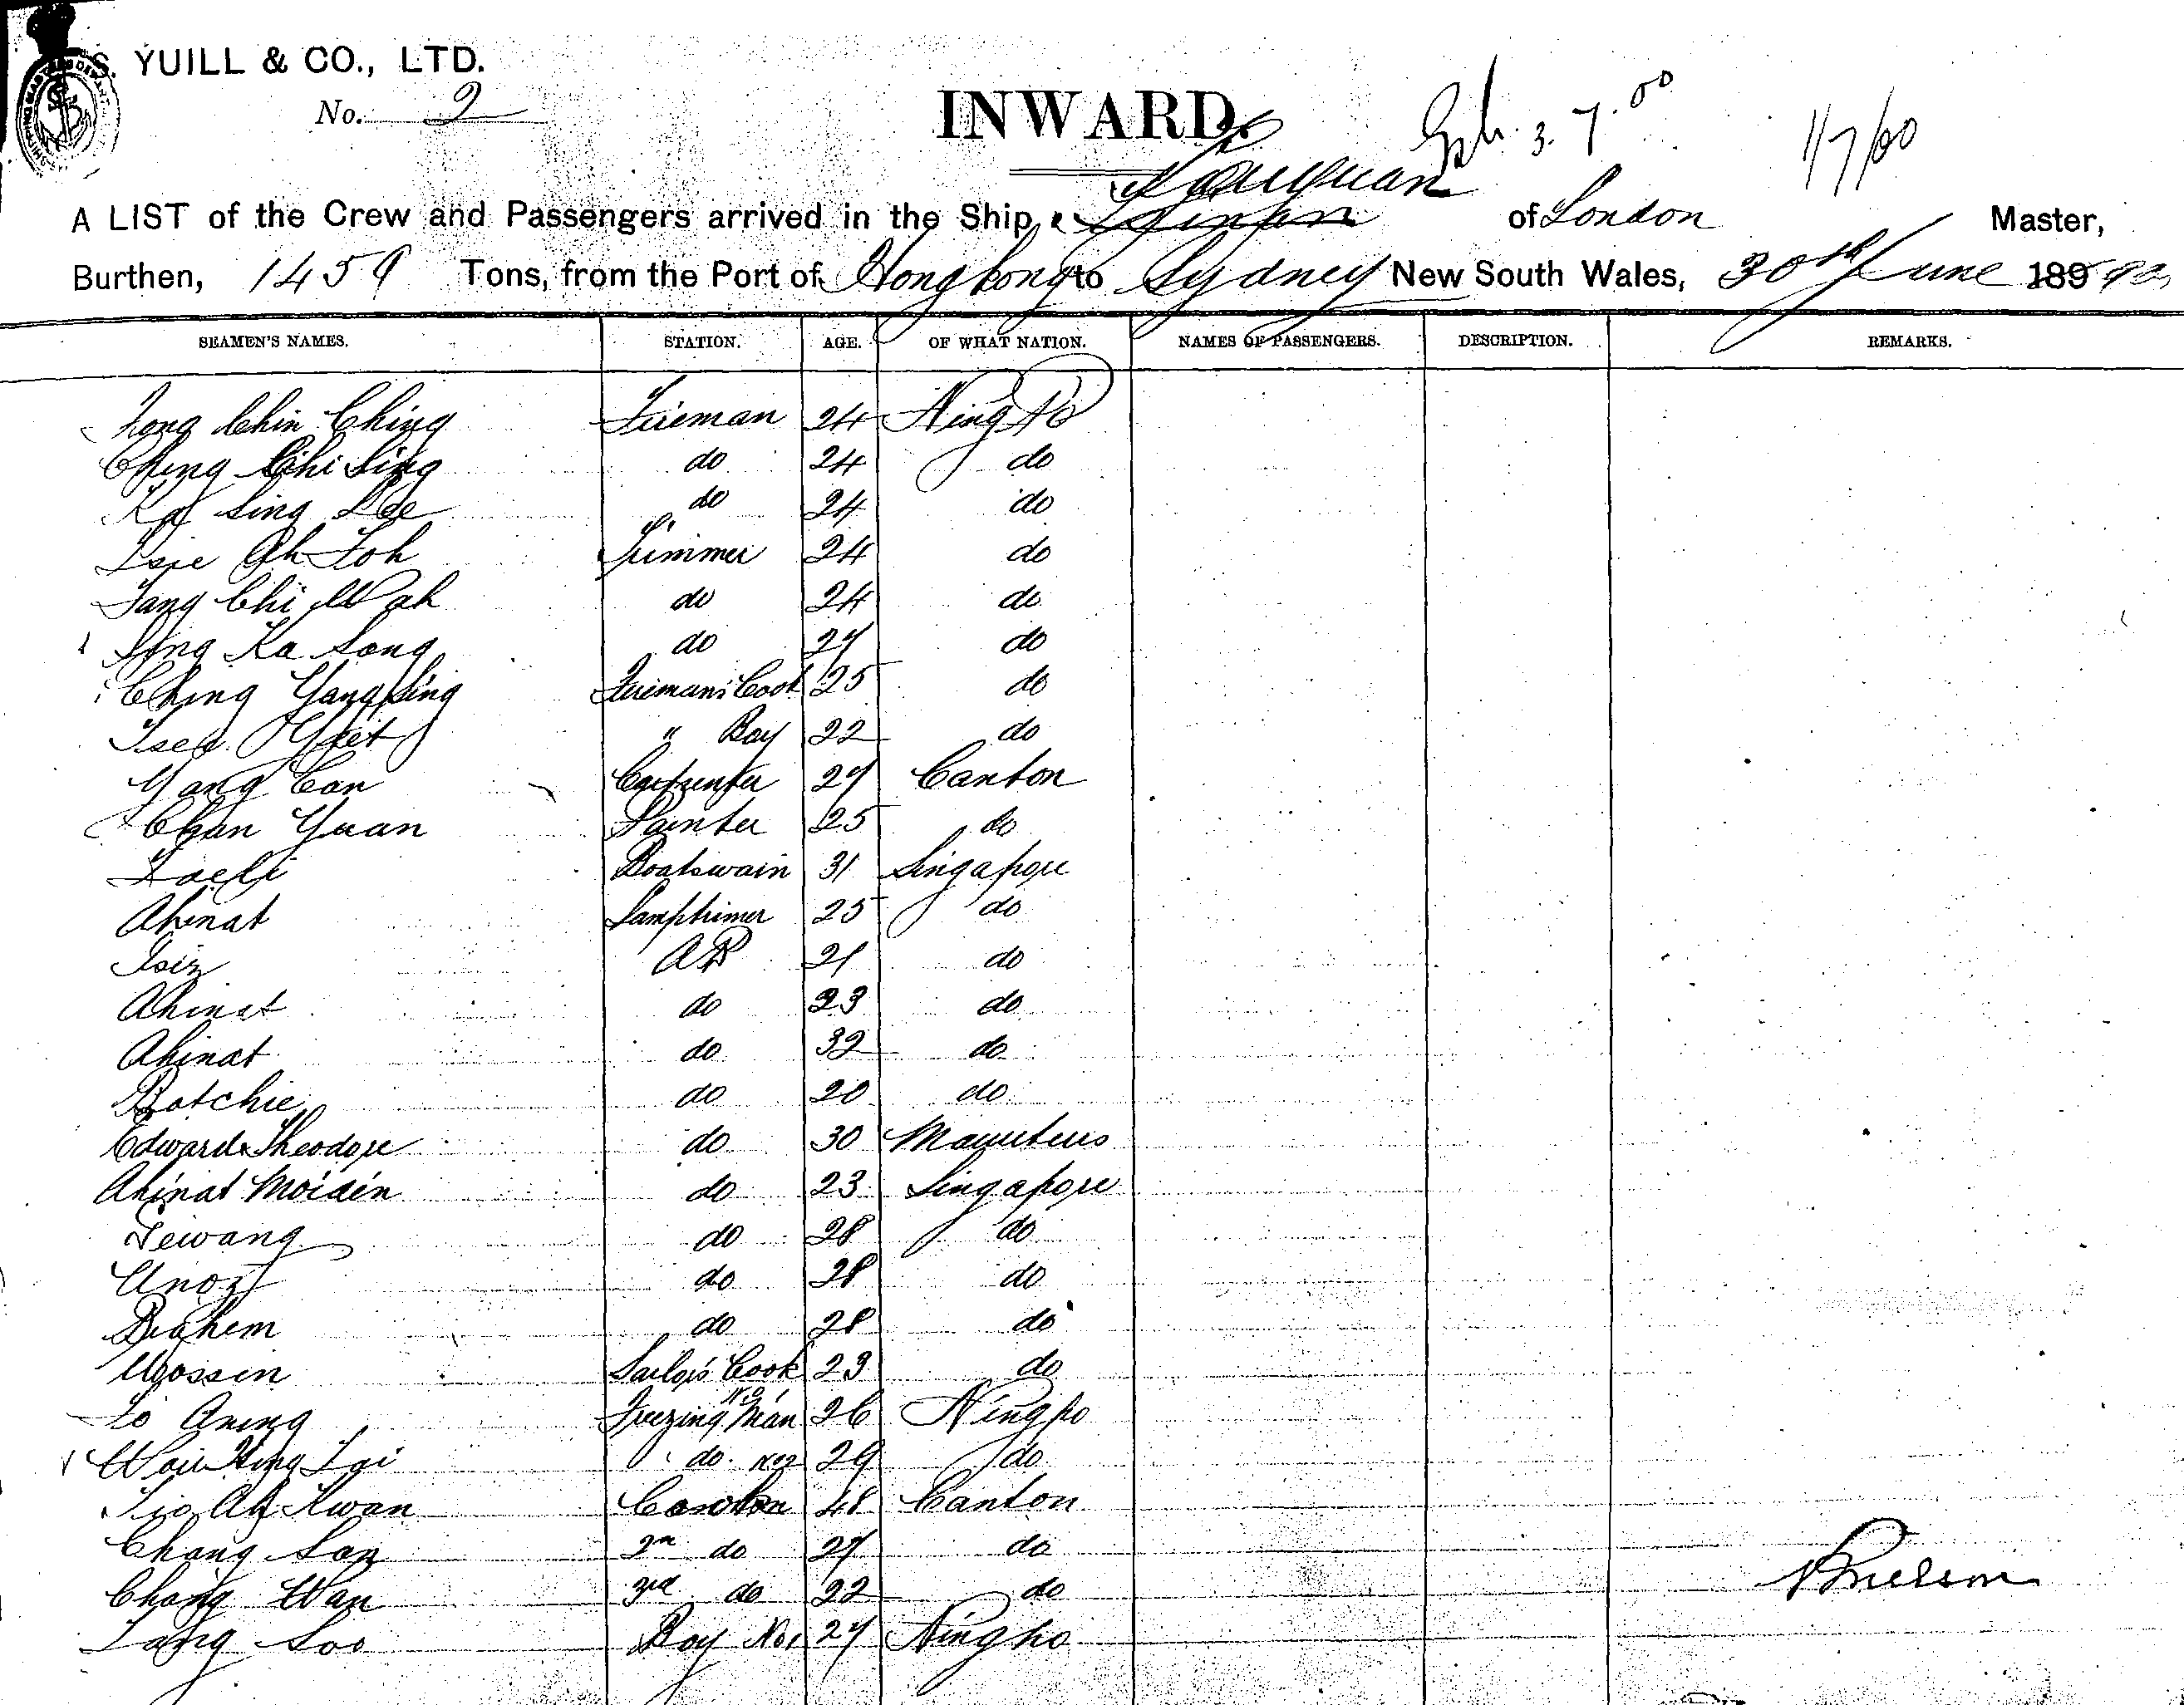 YUILL & CO., LTD.
No. 2
INWARD.
3.7.00
1/7/00
Taiyuan
A LIST of the Crew and Passengers arrived in the Ship Tsinan of London Master,
Burthen, 1459 Tons, from the Port of Hong Kong to Sydney New South Wales, 30th June 189 90
SEAMEN'S NAMES. STATION. AGE. OF WHAT NATION. NAMES OF PASSENGERS. DESCRIPTION. REMARKS.
Fong Chin Ching Fireman 24 Ning Po
Ching Chi Sing do 24 do
Ka Sing Lee do 24 do
Tsie Ah Foh Trimmer 24 do
Tang Chi Wah do 24 do
Ting Ka Song do 27 do
Ching Yang Sing Firemans Cook 25 do
Tseo Yiet " Boy 22 do
Yang Can Carpenter 27 Canton
Chan Yuan Painter 25 do
Boatswain 31 Singapore
Ahinat Lamptrimer 25 do
Isiz AB 21 do
Ahinat do 23 do
Ahinat do 32 do
Batchie do 20 do
Edward Theodore do 30 Mauritius
Ahinat Moidin do 23 Singapore
Tewang do 28 do
Unoz do 28 do
Brahem do 28 do
Mossin Sailors Cook 23 do
Lo Aning Freezing Man No 1 26 Ningpo
Wai Hing Lai do. No 2 29 do
Tio Ah Kwan 48 Canton
Chang San 2nd do 27 do
Chang Wan 3rd do 22 do
Tang Soo Boy No 1 27 Ningpo